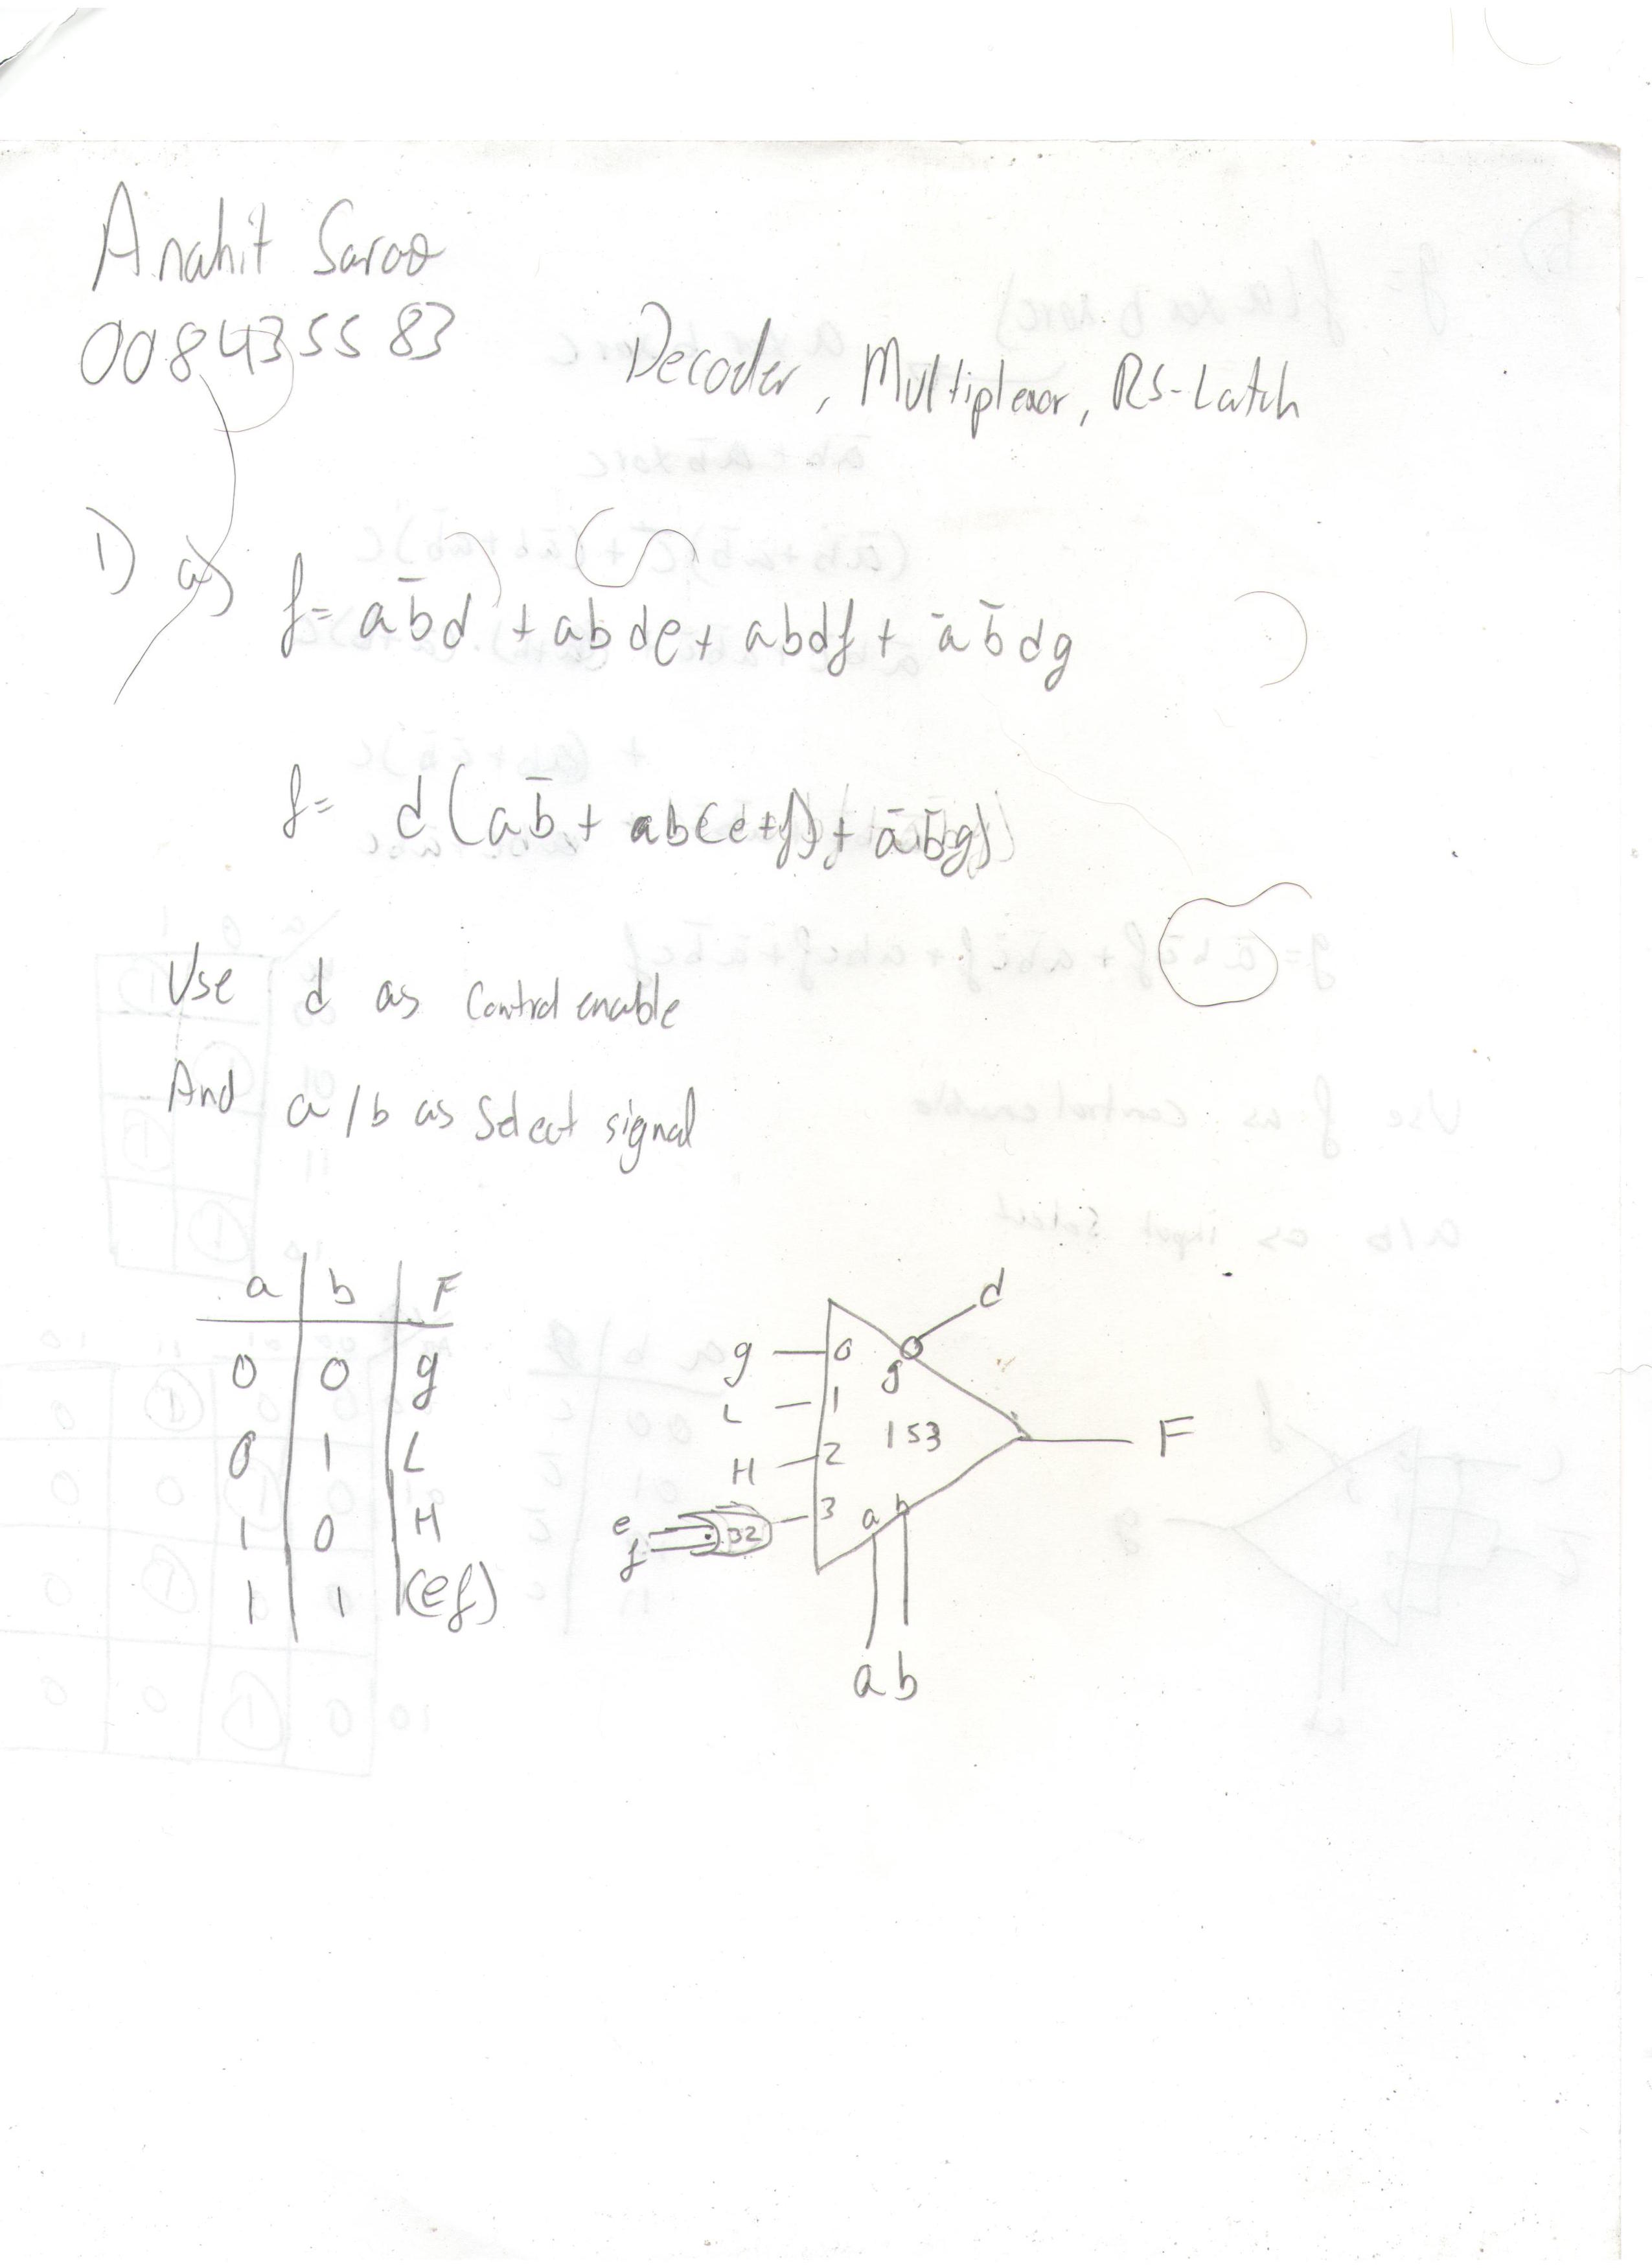 Anahit Saroo
008435583
Decoder, Multiplexor, RS-Latch
1) a) f = ab̄d + abde + abdf + āb̄dg
f = d(ab̄ + ab(e+f) + āb̄g)
Use d as Control enable
And a/b as Select signal
a b F
0 0 g
0 1 L
1 0 H
1 1 (ef)
d
g 0 g
L 1
153 F
H 2
e f 32 3 a b
a b